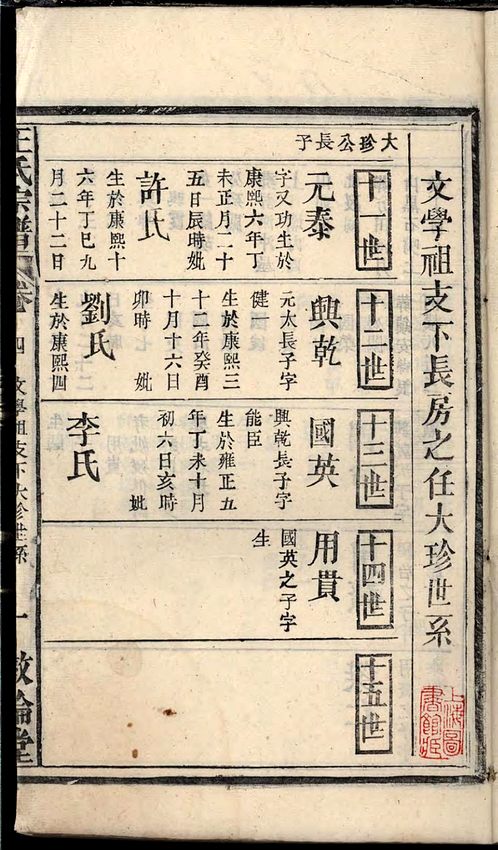 文學祖支下長房之任大珍世系
上海圖
書館藏
十一世
大珍公長子
元泰
字又功生於
康熙六年丁
未正月二十
五日辰時妣
許氏
生於康熙十
六年丁巳九
月二十二日
十二世
興乾
元太長子字
健一
生於康熙三
十二年癸酉
十月十六日
卯時 妣
劉氏
生於康熙四
十三世
國英
興乾長子字
能臣
生於雍正五
年丁未十月
初六日亥時
妣
李氏
十四世
用貴
國英之子字
生
十五世
王氏宗譜 卷四 文學祖支下大珍世系 一 敦倫堂